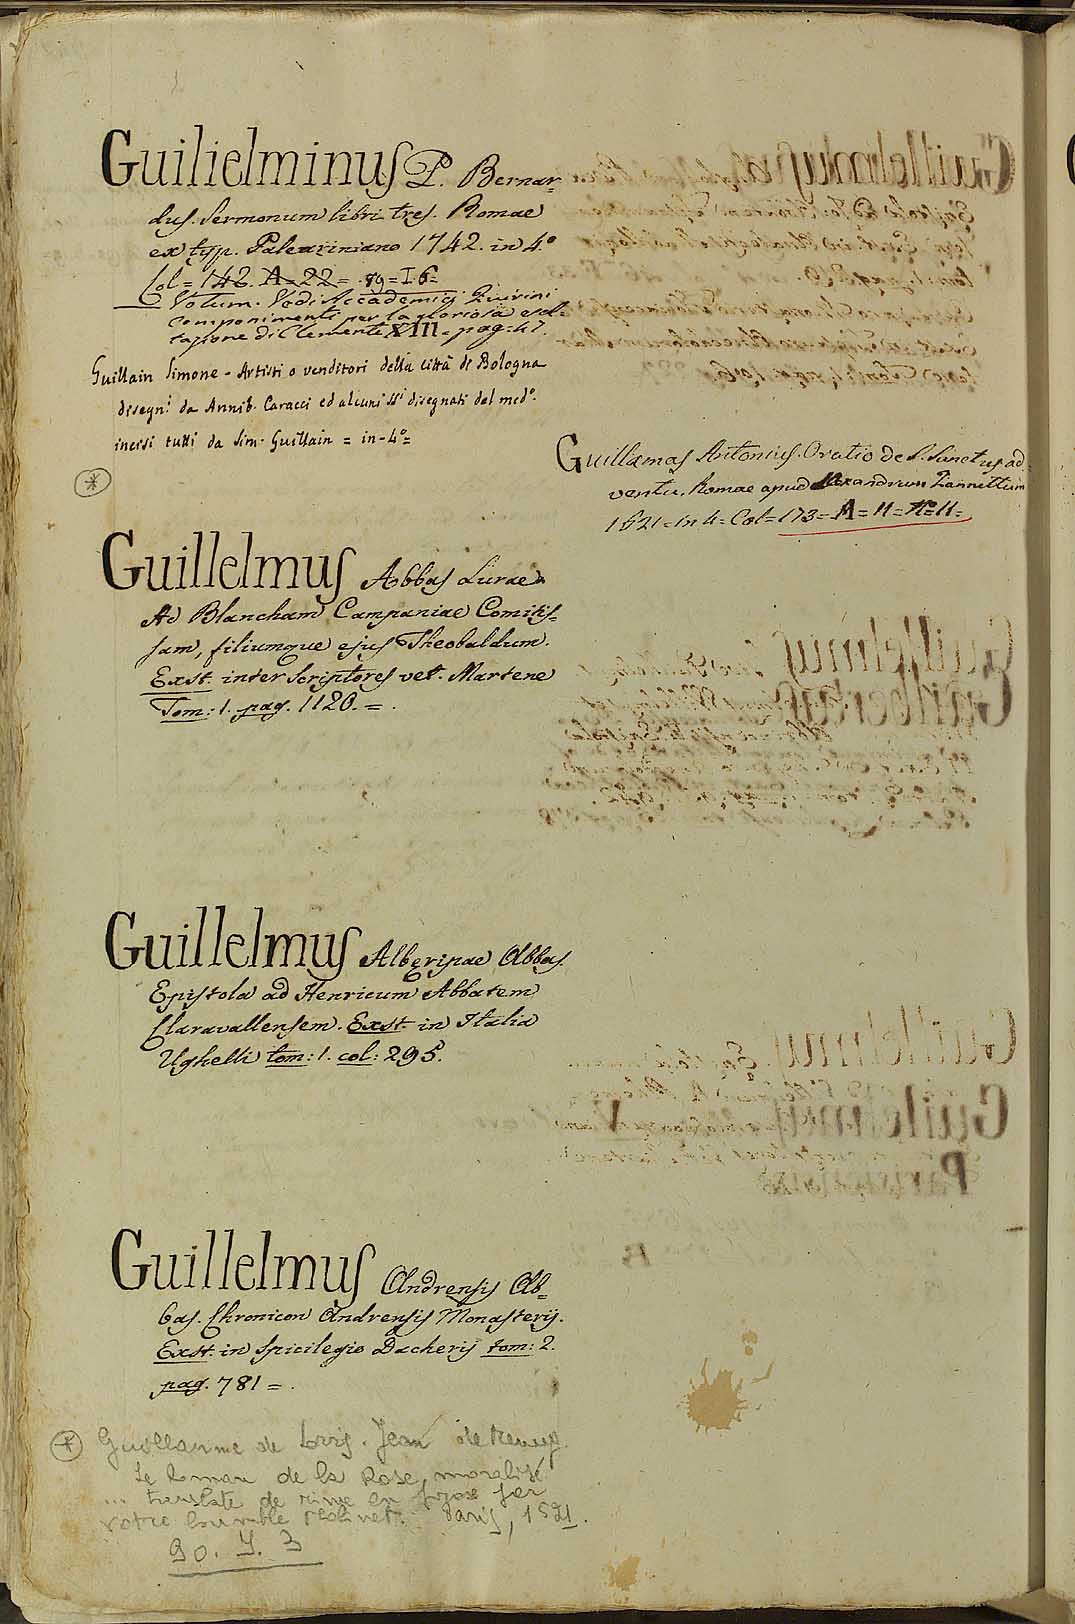 Guilielminus P. Bernar-
dus. Sermonum libri tres. Romae
ex typ. Paleariniano 1742. in 4.º
Col = 148. A = 22 = . 89 = I. 6 =
Volum. Vedi Accademici Quirini
componimenti per la gloriosa esal-
tazione di Clemente XIII = pag: 47.
Guillain Simone - Artisti o venditori della città di Bologna
disegni da Annib. Caracci ed alcuni di disegnati del medº.
incisi tutti da Sim. Guillain = in - 4º =
*
Guillamas Antonius. Oratio de S. Sanctus ad-
ventu. Romae apud Alexandrum Zannettum
1621 = in 4 = Col = 173 = A = 11 = = 11 =
Guillelmus Abbas Lirae
Ad Blancham Campaniae Comitis-
sam, filiumque ejus Theobaldum.
Exst. inter Scriptores vet. Martene
Tom: 1. pag. 1120. = .
Guillelmus Alberipae Abbas.
Epistola ad Henricum Abbatem
Claravallensem. Exst. in Italia
Ughelli tom: 1. col: 295.
Guillelmus Andrensis Ab-
bas. Chronicon Andrensis Monasterij.
Exst. in Spicilegio Dacherij tom: 2.
pag. 781 = .
* Guillaume de Lorris. Jean de
Le Roman de la Rose, moralisé
... translaté de rime en prose par
votre humble Molinet. Paris, 1521.
90. Y. 3